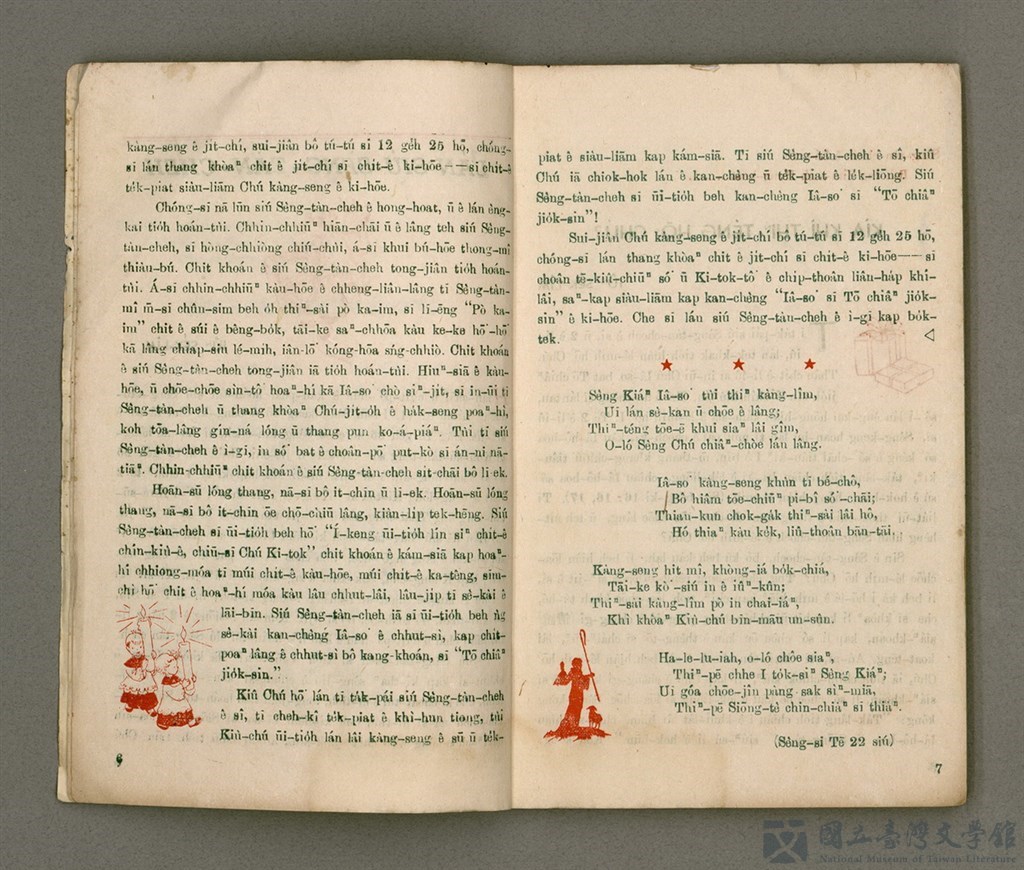 kàng-seng ê ji̍t-chí, sui-jiân bô tú-tú sī 12 ge̍h 25 hō, chóng-
sī lán thang khòaⁿ chit ê ji̍t-chí sī chit-ê ki-hōe——sī chit-ê
te̍k-pia̍t siàu-liām Chú kàng-seng ê ki-hōe.
Chóng-sī nā lūn siú Sèng-tàn-cheh ê hong-hoat, ū ê lán èng-
kai tio̍h hoán-tùi. Chhin-chhiūⁿ hiān-chāi ū ê lâng teh siú Sèng-
tàn-cheh, sī hòng-chhiòng chiú-chùi, á-sī khui bú-hōe thong-mî
thiàu-bú. Chit khoán ê siú Sèng-tàn-cheh tong-jiân tio̍h hoán-
tùi. Á-sī chhin-chhiūⁿ kàu-hōe ê chheng-liân-lâng tī Sèng-tàn-
mî m̄-sī chûn-sim beh o̍h thiⁿ-sài pò ka-im, sī lī-ēng "Pò ka-
im" chit ê súi ê bêng-bo̍k, tāi-ke saⁿ-chhōa kàu ke-ke hō͘-hō͘
kā lâng chiap-siu lé-mih, iân-lō͘ kóng-hōa sńg-chhiò. Chit khoán
ê siú Sèng-tàn-cheh tong-jiân iā tio̍h hoán-tùi. Hiuⁿ-siā ê kàu-
hōe, ū chōe-chōe sìn-tô͘ hoaⁿ-hí kā Iâ-so͘ chò siⁿ-ji̍t, sī in-ūi tī
Sèng-tàn-cheh ū thang khòaⁿ Chú-ji̍t-o̍h ê ha̍k-seng poaⁿ-hì,
koh tōa-lâng gín-ná lóng ū thang pun ko-á-piáⁿ. Tùi tī siú
Sèng-tàn-cheh ê ì-gī, in só͘ bat ê choân-pō͘ put-kò sī án-ni nā-
tiāⁿ. Chhin-chhiūⁿ chit khoán ê siú Sèng-tàn-cheh si̍t-chāi bô lī-ek.
Hoān-sū lóng thang, nā-sī bô it-chīn ū lī-ek. Hoān-sū lóng
thang, nā-sī bô it-chīn ōe chō-chiū lâng, kiàn-li̍p tek-hēng. Siú
Sèng-tàn-cheh sī ūi-tio̍h beh hō͘ "Í-keng ūi-tio̍h lín siⁿ chit-ê
chín-kiù-ê, chiū-sī Chú Ki-tok" chit khoán ê kám-siā kap hoaⁿ-
hí chhiong-móa tī múi chit-ê kàu-hōe, múi chit-ê ka-têng, sīm-
chì hō͘ chit ê hoaⁿ-hí móa kàu lâu chhut-lâi, lâu-ji̍p tī sè-kài ê
lāi-bīn. Siú Sèng-tàn-cheh iā sī ūi-tio̍h beh ǹg
sè-kài kan-chèng Iâ-so͘ ê chhut-sì, kap chit-
poaⁿ lâng ê chhut-sì bô kang-khoán, sī "Tō chiâⁿ
jio̍k-sin."
Kiû Chú hō͘ lán tī ta̍k-pái siú Sèng-tàn-cheh
ê sî, tī cheh-kî te̍k-pia̍t ê khì-hun tiong, tùi
Kiù-chú ūi-tio̍h lán lâi kàng-seng ê sū ū te̍k-
6
pia̍t ê siàu-liām kap kám-siā. Tī siú Sèng-tàn-cheh ê sî, kiû
Chú iā chiok-hok lán ê kan-chèng ū te̍k-pia̍t ê le̍k-liōng. Siú
Sèng-tàn-cheh sī ūi-tio̍h beh kan-chèng Iâ-so͘ sī "Tō chiâⁿ
jio̍k-sin"!
Sui-jiân Chú kàng-seng ê ji̍t-chí bô tú-tú sī 12 ge̍h 25 hō,
chóng-sī lán thang khòaⁿ chit ê ji̍t-chí sī chit-ê ki-hōe——sī
choân tē-kiû-chiūⁿ só͘ ū Ki-tok-tô͘ ê chi̍p-thoân liân-ha̍p khí-
lâi, saⁿ-kap siàu-liām kap kan-chèng "Iâ-so͘ sī Tō chiâⁿ jio̍k-
sin" ê ki-hōe. Che sī lán siú Sèng-tàn-cheh ê ì-gī kap bo̍k-
tek. ◁
★ ★ ★
Sèng Kiáⁿ Iâ-so͘ tùi thiⁿ kàng-lîm,
Ui lán sè-kan ū chōe ê lâng;
Thiⁿ-téng tōe-ē khui siaⁿ lâi gîm,
O-ló Sèng Chú chiâⁿ-chòe lán lâng.
Iâ-so͘ kàng-seng khùn tī bé-chô,
Bô hiâm tōe-chiūⁿ pi-bî só͘-chāi;
Thian-kun chok-ga̍k thiⁿ-sài lâi hō,
Hó thiaⁿ kàu ke̍k, liû-thoân bān-tāi.
Kàng-seng hit mî, khòng-iá bo̍k-chiá,
Tāi-ke kò͘-siú in ê iûⁿ-kûn;
Thiⁿ-sài kàng-lîm pò in chai-iáⁿ,
Khì khòaⁿ Kiù-chú bīn-māu un-sûn.
Ha-le-lu-iah, o-ló chôe siaⁿ,
Thiⁿ-pē chhe I to̍k-siⁿ Sèng Kiáⁿ;
Ui góa chōe-jîn pàng sak sìⁿ-miā,
Thiⁿ-pē Siōng-tè chin-chiàⁿ sī thiàⁿ.
(Sèng-si Tē 22 siú)
7
國立臺灣文學館
National Museum of Taiwan Literature